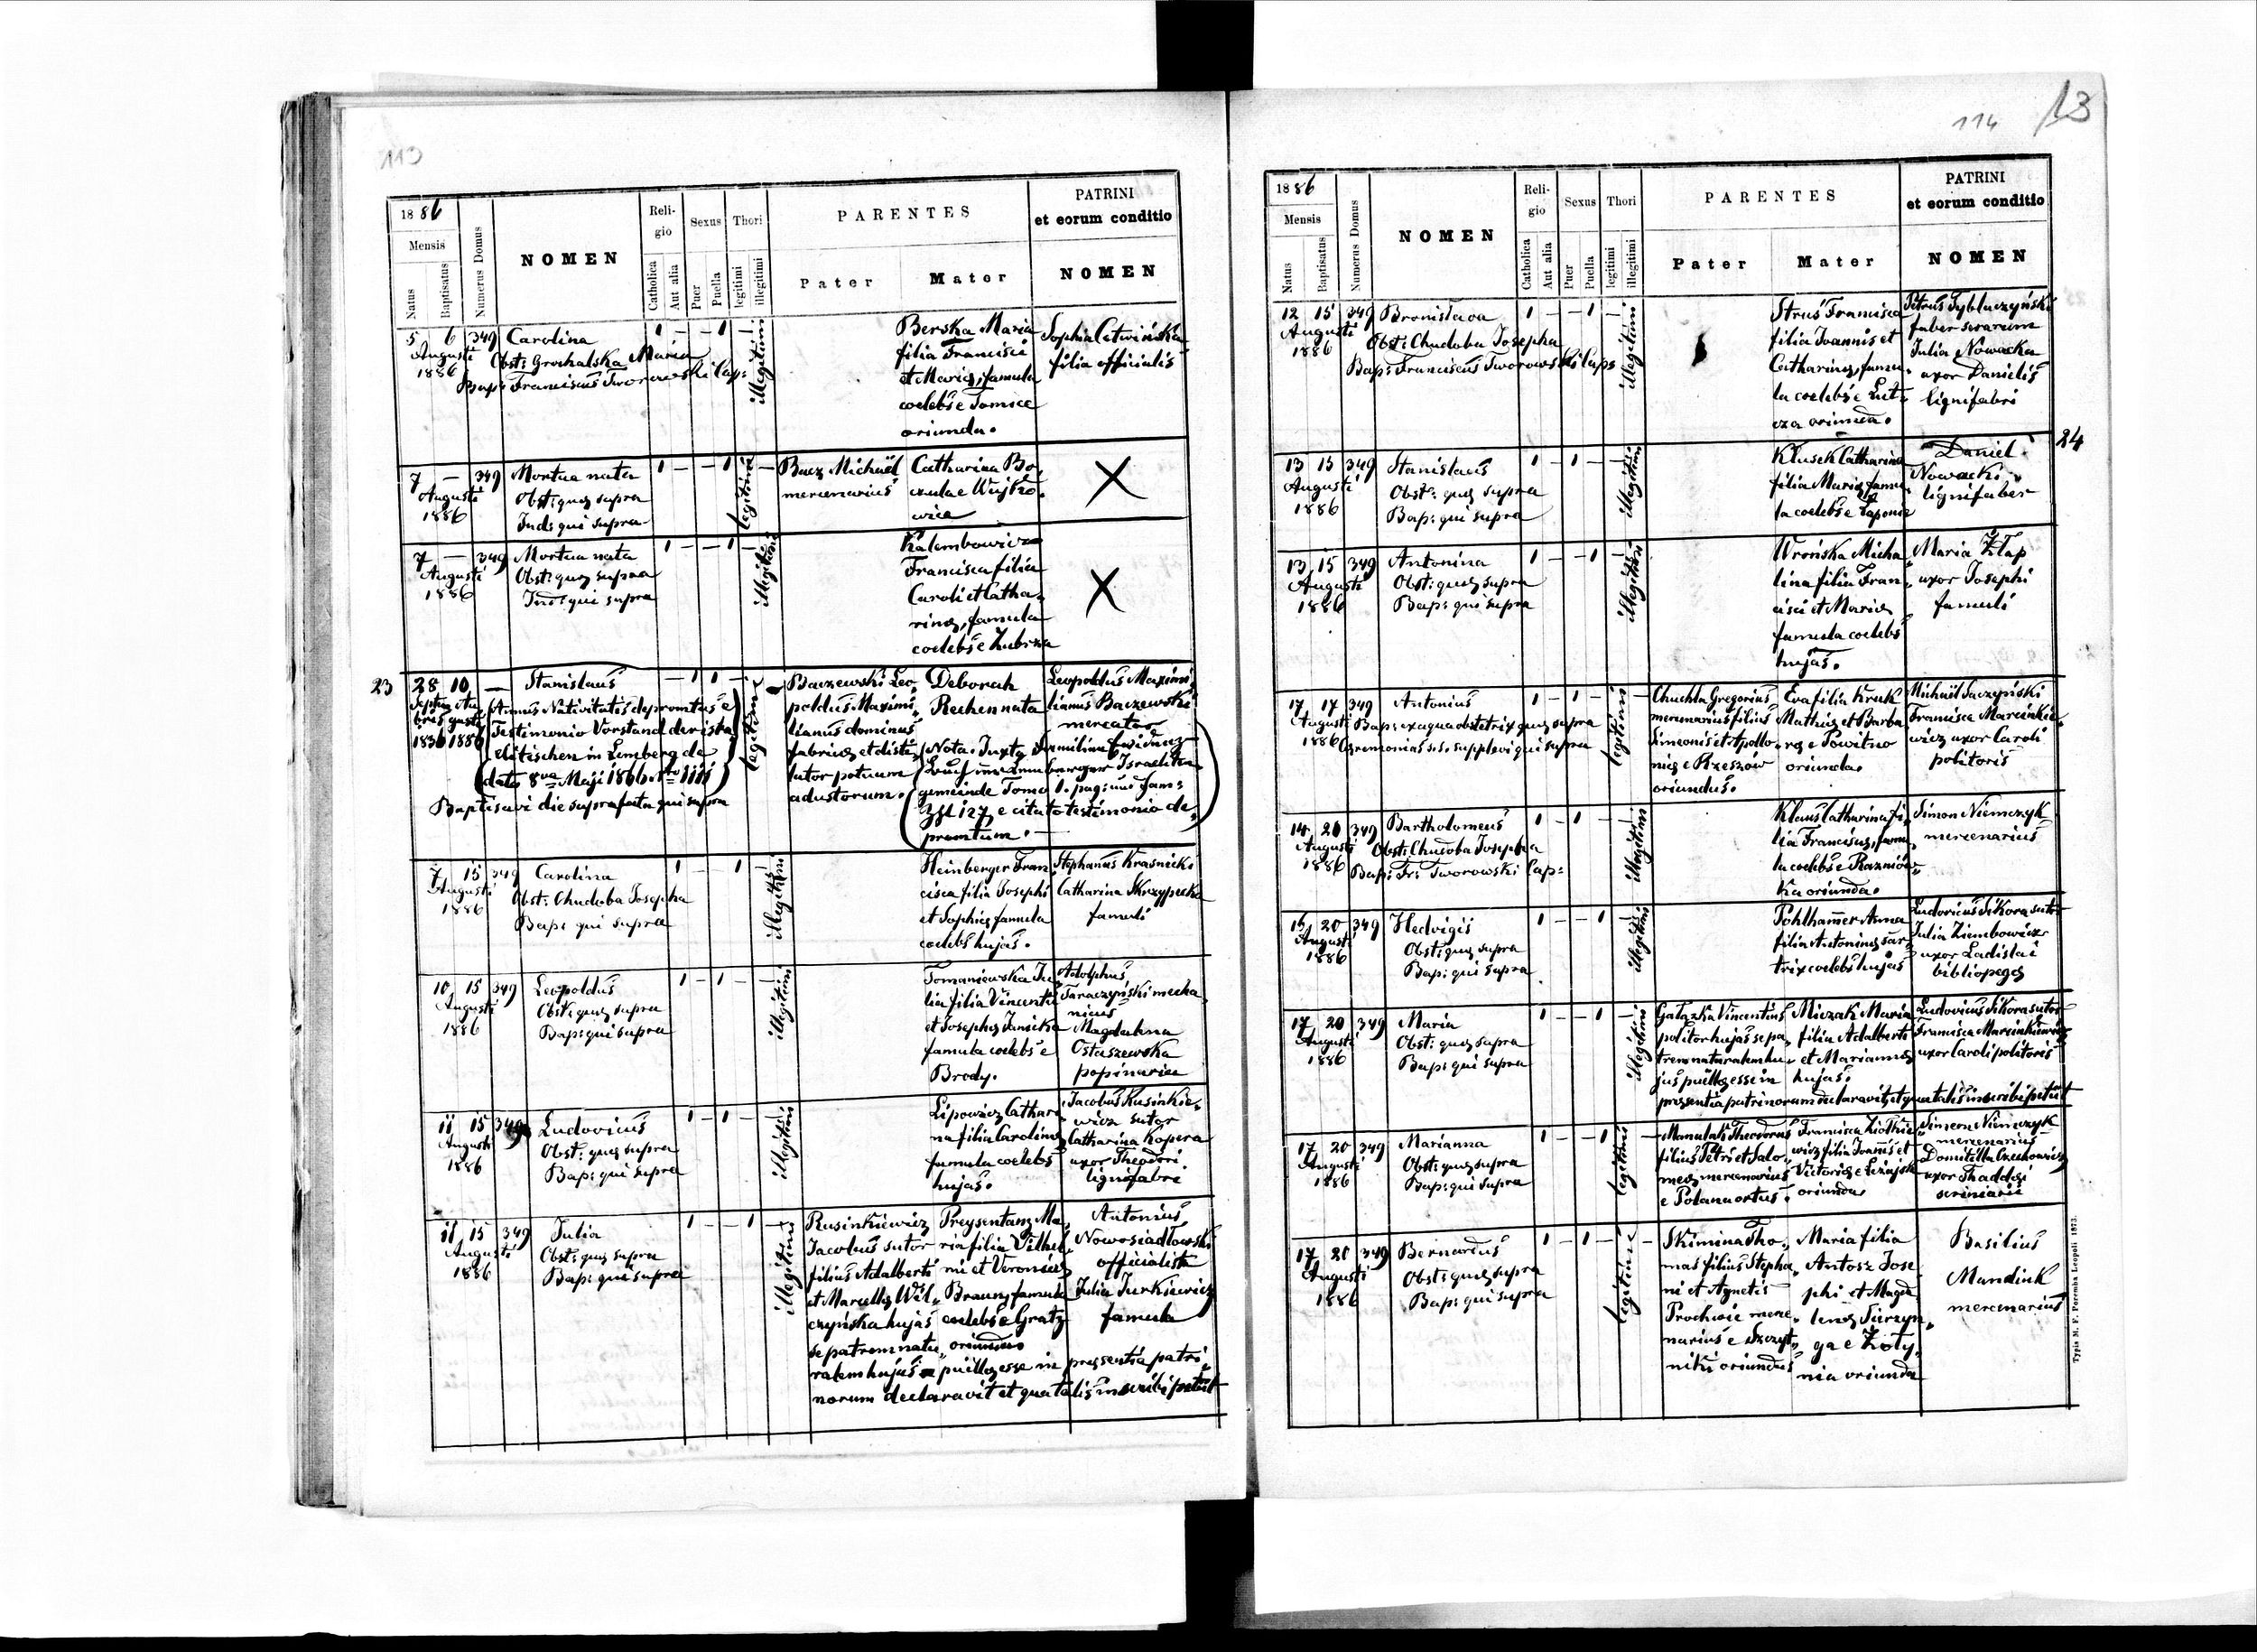 113
1886
Mensis
Natus
Baptisatus
Numerus Domus
NOMEN
Religio
Catholica
Aut alia
Sexus
Puer
Puella
Thori
legitimi
illegitimi
PARENTES
Pater
Mater
PATRINI
et eorum conditio
NOMEN
5 6 349 Carolina
Augusti
1886
Obst: Grochalska Maria
Bap: Franciscus Tworowski Cap:
1 – – 1 –
illegitimi
Berska Maria
filia Francisci
et Mariæ, famula
coelebs e Tomice
oriunda.
Sophia Litwińska
filia officialis
7 — 349 Mortua nata
Augusti
1886
Obst: quæ supra
Ind: qui supra
1 – – 1 –
legitimi
Bacz Michaël
mercenarius
Catharina Bo,
X
7 — 349 Mortua nata
Augusti
1886
Obst: quæ supra
Ind: qui supra
1 – – 1 –
illegitimi
Kalembowicz
Francisca filia
Caroli et Catha,
rinæ, famula
coelebs e Zubrza
X
23
28 10 — Stanislaus
Septem Au,
bres gusti
1836 1886
(Annus Nativitatis depromtus e
Testimonio Vorstand der isra,
elitischen in Lemberg de
dato 8va Maji 1866 Nro 1111)
Baptisavi die suprafata qui supra
– 1 1 –
legitimi
Baczewski Leo,
poldus Maximi,
lianus dominus
fabricæ et distil,
lator potuum
adustorum.
Deborah
Rechen nata
(Nota. Juxta Familien Ewidenz
Buch der Lemberger Israeliten
gemeinde Tomo 1. pag:
Zahl 127, e citato testimonio de,
promtum. —
Leopoldus Maximi,
lianus Baczewski
mercator
7 15 349 Carolina
Augusti
1886
Obst: Chudoba Josepha
Bap: qui supra
1 – 1 –
illegitimi
Heimberger Fran
cisca filia Josephi
et Sophiæ famula
coelebs hujas.
Stephanus Krasnicki
Catharina Skrzypecka
famuli
10 15 349 Leopoldus
Augusti
1886
Obst: quæ supra
Bap: qui supra
1 – 1 –
illegitimi
Tomaniewska Ju
lia filia Vincentii
et Josephæ Janicka
famula coelebs e
Brody.
Adolphus
Taraczyński mecha,
nicus
Magdalena
Ostaszewska
popinaria
11 15 349 Ludovicus
Augusti
1886
Obst: quæ supra
Bap: qui supra
1 – 1 –
illegitimi
Lipowicz Cathari
na filia Carolinæ
famula coelebs
hujas.
Jacobus Rusinkie,
wicz sutor
Catharina Kopera
uxor Theodori
lignifabri
11 15 349 Julia
Augusti
1886
Obst: quæ supra
Bap: qui supra
1 – 1 –
illegitimi
Rusinkiewicz
Jacobus sutor
filius Adalberti
et Marcellæ Wil,
czyńska hujas
se patrem natu,
Preysentanz Ma,
ria filia Vilhel,
mi et Veronicæ
Braunz famula
coelebs e Gratz
oriunda
ralem hujus puellæ esse in præsentia patri,
norum declaravit et qua talis inscribi petiit
Antonius
Nowosiadlowski
officialista
Julia Jurkiewicz
famula
114
13
1886
Mensis
Natus
Baptisatus
Numerus Domus
NOMEN
Religio
Catholica
Aut alia
Sexus
Puer
Puella
Thori
legitimi
illegitimi
PARENTES
Pater
Mater
PATRINI
et eorum conditio
NOMEN
12 15 349 Bronislava
Augusti
1886
Obst: Chudoba Josepha
Bap: Franciscus Tworowski Cap:
1 – – 1 –
illegitimi
Struś Francisca
filia Joannis et
Catharinæ, famu,
la coelebs e Lut,
cza oriunda.
Petrus Tybluczyński
faber serarum
Julia Nowacka
uxor Danielis
lignifabri
24
13 15 349 Stanislaus
Augusti
1886
Obst: quæ supra
Bap: qui supra
1 – 1 –
illegitimi
Klusek Catharina
filia Mariæ famu,
la coelebs e
Daniel
Nowacki
lignifaber
13 15 349 Antonina
Augusti
1886
Obst: quæ supra
Bap: qui supra
1 – – 1 –
illegitimi
Wrońska Micha
lina filia Fran,
cisci et Mariæ
famula coelebs
hujas.
Maria Kłap
uxor Josephi
famuli
17 17 349 Antonius
Augusti
1886
Bap: ex aqua obstetrix quæ supra
Ceremonias s. s. supplevi qui supra
1 – 1 –
legitimi
Chuchla Gregorius
mercenarius filius
Simeonis et Apollo,
niæ e Rzeszów
oriundus.
Eva filia Kruk
Mathiæ et Barba
ræ e Powitno
oriunda.
Michaël Saczyński
Francisca Marcinkie,
wicz uxor Caroli
politoris
14 20 349 Bartholomeus
Augusti
1886
Obst: Chudoba Josepha
Bap: Fr: Tworowski Cap:
1 – 1 –
illegitimi
Klaus Catharina fi,
lia Franciscæ, famu,
la coelebs e Razniów,
ka oriunda.
Simon Niemczyk
mercenarius
15 20 349 Hedvigis
Augusti
1886
Obst: quæ supra
Bap: qui supra
1 – – 1 –
illegitimi
Pohlhammer Anna
filia Antoninæ sar,
trix coelebs hujas
Ludovicus Sikora sutor
Julia Ziembowicz
uxor Ladislai
bibliopegæ
17 20 349 Maria
Augusti
1886
Obst: quæ supra
Bap: qui supra
1 – – 1 –
illegitimi
Gałązka Vincentius
politor hujas se pa,
trem naturalem hu,
jus puellæ esse in
Miczak Maria
filia Adalberti
et Mariannæ
hujas.
præsentia patrinorum declaravit et qua talis inscribi petiit
Ludovicus Sikora sutor
Francisca Marcinkiewicz
uxor Caroli politoris
17 20 349 Marianna
Augusti
1886
Obst: quæ supra
Bap: qui supra
1 – – 1 –
legitimi
Manulak Theodorus
filius Petri et Salo,
meæ mercenarius
e Polana ortus.
Francisca Ziółkie,
wicz filia Joannis et
Victoriæ e Leżajsk
oriunda
Simeon Niemczyk
mercenarius
Domitella Czechowicz
uxor Thaddæi
scriniarii
17 20 349 Bernardus
Augusti
1886
Obst: quæ supra
Bap: qui supra
1 – 1 –
legitimi
Skimina Tho,
mas filius Stepha,
ni et Agnetis
Prochwie merce,
narius e Szczyt,
niki oriundus
Maria filia
Antosz Jose
phi et Magda
lenæ Turzyn,
ga e Żoły,
nia oriunda
Basilius
Mandink
mercenarius
Typis M. F. Poremba Leopoli 1873.